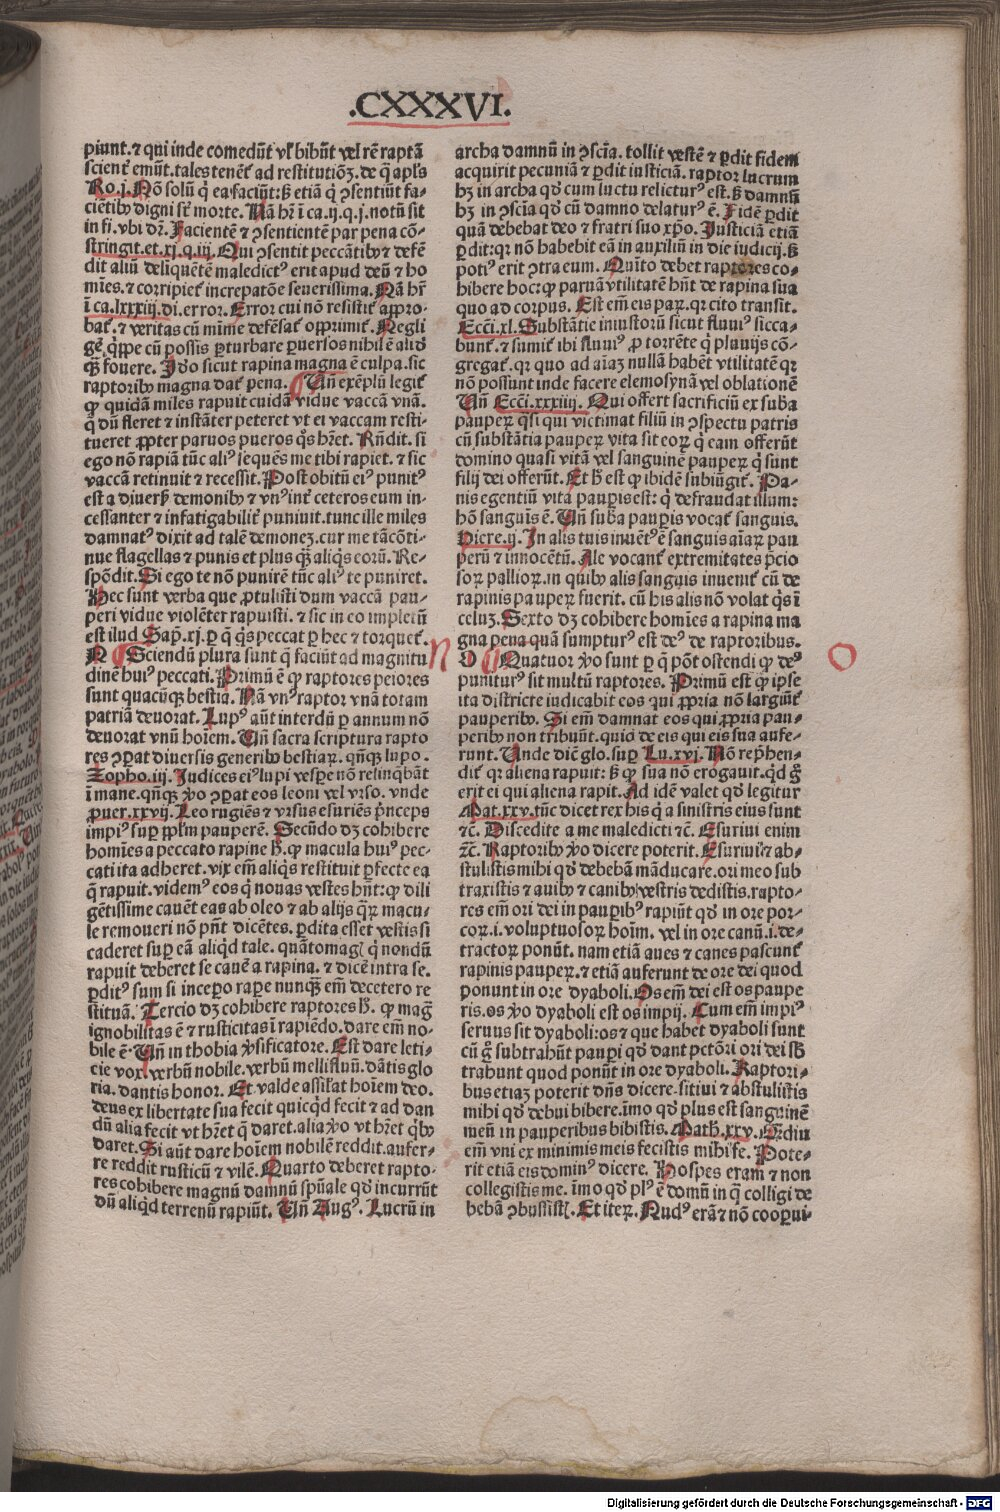 .CXXXVI.
piunt. ⁊ qui inde comedūt vl̓ bibūt vel rē raptā
scient̄ emūt. tales tenēt̄ ad restitutiōꝫ. de q̄ apl̓s
Ro.j. Nō solū q̄ ea faciūt: sꝫ etiā q̄ ꝯsentiūt fa⸗
ciētibꝰ digni sūt morte. Nā hr̄ i ca.ij.q.j. notū sit
in fi. vbi dr̄. Facientē ⁊ ꝯsentientē par pena cō⸗
stringit. et.xj.q.iij. Qui ꝯsentit peccātibꝰ ⁊ defē⸗
dit aliū deliquētē maledictꝰ erit apud deū ⁊ ho
mīes. ⁊ corripiet̄ increpatōe seuerissima. Nā hr̄
ī ca.lxxxiij.di. error. Error cui nō resistit̄ appro⸗
bat̄. ⁊ veritas cū minime defēsat̄ opprimit̄. Negli
gē̄ q̄ppe cū possis ꝑturbare ꝑuersos nihil ē aliḋ
qȝ̄ fouere. Iḋo sicut rapina magna ē culpa. sic
raptoribꝰ magna dat̄ pena. Uñ exēplū legit̄
ꝙ quidā miles rapuit cuidā vidue vaccā vnā.
q̄ dū fleret ⁊ instāter peteret vt ei vaccam resti⸗
tueret ꝓpter paruos pueros q̊s hr̄et. Rñdit. si
ego nō rapiā tūc aliꝰ seques me tibi rapiet. ⁊ sic
vaccā retinuit ⁊ recessit. Post obitū eiꝰ punitꝰ
est a diuersꝭ demonibꝰ ⁊ vnꝰ int̄ ceteros eum in⸗
cessanter ⁊ infatigabilit̄ puniuit. tunc ille miles
damnatꝰ dixit ad talē demonez. cur me tā cōti⸗
nue flagellas ⁊ punis et plus qȝ̄ aliq̊s eorū. Re⸗
spōdit. Si ego te nō punirē tūc aliꝰ te puniret.
Hec sunt verba que ꝓtulisti dum vaccā pau⸗
peri vidue violēter rapuisti. ⁊ sic in eo impletū
est illud Sap̄.xj. ꝑ q̄ q̊s peccat ꝑ hec ⁊ torquet̄.
N Sciendū plura sunt q̄ faciūt ad magnitu
dinē huiꝰ peccati. Primū ē ꝙ raptores peiores
sunt quacūqꝫ bestia. Nā vnꝰ raptor vnā totam
patriā deuorat. Lupꝰ aūt interdū ꝑ annum nō
deuorat vnū hoīem. Uñ sacra scriptura rapto
res ꝯꝑat diuersis generibꝰ bestiaꝝ. qñqꝫ lupo.
Zopho.iij. Iudices eiꝰ lupi vesꝑe nō relinq̄bāt
ī mane. qñqꝫ v̊o ꝯꝑat eos leoni vel vrso. vnde
ꝓuer.xxvij. Leo rugiēs ⁊ vrsus esuriēs p̄nceps
impiꝰ suꝑ ppl̓m pauperē. Secūdo dꝫ cohibere
homīes a peccato rapine h̓. ꝙ macula huiꝰ pec⸗
cati ita adheret. vix em̄ aliq̊s restituit ꝑfecte ea
q̄ rapuit. videmꝰ eos q̄ nouas vestes hn̄t: ꝙ dili
gētissime cauēt eas ab oleo ⁊ ab alijs q̄ꝝ macu⸗
le remoueri nō pn̄t dicētes. ꝑdita esset vestis si
caderet suꝑ eā aliqḋ tale. quāto magꝭ q̄ nondū
rapuit deberet se cauē a rapina. ⁊ dicē intra se.
ꝑditꝰ sum si incepo rape nunqȝ̄ em̄ decetero re
stituā. Tercio dꝫ cohibere raptores h̓. ꝙ mag̓
ignobilitas ē ⁊ rusticitas ī rapiēdo. dare em̄ no⸗
bile ē. Uñ in thobia v̊sificatore. Est dare leti⸗
cie vox. verbū nobile. verbū mellifluū. dātis glo
ria. dantis honor. Et valde assil̓at hoīem deo.
deus ex libertate sua fecit quicqḋ fecit ⁊ ad dan
dū alia fecit vt hr̄et q̄ daret. alia v̊o vt hr̄et q̊bꝰ
daret. Si aūt dare hoīem nobilē reddit. aufer⸗
re reddit rusticū ⁊ vilē. Quarto deberet rapto⸗
res cohibere magnū damnū spūale qḋ incurrūt
dū aliqḋ terrenū rapiūt. Uñ Augꝰ. Lucrū in
archa damnū in ꝯscīa. tollit vestē ⁊ ꝑdit fidem
acquirit pecuniā ⁊ ꝑdit iusticiā. raptor lucrum
hꝫ in archa qḋ cum luctu relicturꝰ est. sꝫ damnū
hꝫ in ꝯscīa qḋ cū damno delaturꝰ ē. Fidē ꝑdit
quā debebat deo ⁊ fratri suo xp̄o. Iusticiā etiā
ꝑdit: qꝛ nō habebit eā in auxiliū in die iudicij. sꝫ
potiꝰ erit ꝯtra eum. Quīto debet raptores co⸗
hibere hoc: ꝙ paruā vtilitatē hn̄t de rapina sua
quo ad corpus. Est em̄ eis paꝝ. qꝛ cito transit.
Ecci.xl. Substātie iniustorū sicut fluuiꝰ sicca⸗
bunt̄. ⁊ sumit̄ ibi fluuiꝰ ꝓ torrēte q̄ pluuijs cō⸗
gregat̄. qꝛ quo ad aīaꝫ nullā habēt vtilitatē qꝛ
nō possunt inde facere elemosynā vel oblationē
Uñ Ecci.xxxiiij. Qui offert sacrificiū ex suba
pauperꝝ q̄si qui victimat filiū in ꝯspectu patris
cū substātia pauperꝝ vita sit eoꝝ q̄ eam offerūt
domino quasi vitā vel sanguinē pauperꝝ q̄ sunt
filij dei offerūt. Et h̓ est ꝙ ibidē subiūgit̄. Pa⸗
nis egentiū vita pauꝑis est: q̄ defraudat illum:
hō sanguīs ē. Uñ suba pauꝑis vocat̄ sanguis.
Hiere.ij. In alis tuis inuētꝰ ē sanguis aīaꝝ pau
perū ⁊ innocētū. Ale vocant̄ extremitates p̄cio
soꝝ pallioꝝ. in quibꝰ alis sanguis inuenit̄ cū de
rapinis pauperꝝ fuerit. cū his alis nō volat q̊s ī
celuꝫ. Sexto dꝫ cohibere homīes a rapina ma
gna pena quā sumpturꝰ est deꝰ de raptoribus.
O Quatuor v̊o sunt ꝑ q̄ pōt ostendi ꝙ deꝰ
puniturꝰ sit multū raptores. Primū est ꝙ ipse
ita districte iudicabit eos qui ꝓpria nō largiūt̄
pauperibꝰ. Si em̄ damnat eos qui ꝓpria pau⸗
peribꝰ non tribuūt. quid de eis qui eis sua aufe⸗
runt. Unde dic̄ glo. suꝑ Lu.xvj. Nō rep̄hen⸗
dit̄ qꝛ aliena rapuit: sꝫ ꝙ sua nō erogauit. qḋ g̊
erit ei qui aliena rapit. Ad idē valet qḋ legitur
Mat.xxv. tūc dicet rex his q̄ a sinistris eius sunt
⁊c̄. Discedite a me maledicti ⁊c̄. Esuriui enim
⁊c̄. Raptoribꝰ v̊o dicere poterit. Esuriui ⁊ ab⸗
stulistis mihi qḋ debebā māducare. ori meo sub
traxistis ⁊ auibꝰ ⁊ canibꝰ vestris dedistis. rapto⸗
res em̄ ori dei in pauꝑibꝰ rapiūt qḋ in ore por⸗
coꝝ .i. voluptuosoꝝ hoīm. vel in ore canū .i. de⸗
tractoꝝ ponūt. nam etiā aues ⁊ canes pascunt̄
rapinis pauperꝝ. ⁊ etiā auferunt de ore dei quod
ponunt in ore dyaboli. Os em̄ dei est os paupe
ris. os v̊o dyaboli est os impij. Cum em̄ impiꝰ
seruus sit dyaboli: os ⁊ que habet dyaboli sunt
cū g̊ subtrahūt pauꝑi qḋ dant pctōri ori dei sb̓
trahunt quod ponūt in ore dyaboli. Raptori⸗
bus etiaꝫ poterit dn̄s dicere. sitiui ⁊ abstulistis
mihi qḋ debui bibere. īmo qḋ plus est sanguinē
meū in pauperibus bibistis. Math̓.xxv. Qḋ diu
em̄ vni ex minimis meis fecistis mihi fe. Pote⸗
rit etiā eis dominꝰ dicere. Hospes eram ⁊ non
collegistis me. īmo qḋ plꝰ ē domū in q̄ colligi de
bebā ꝯbussistꝭ. Et iteꝝ. Nudꝰ erā ⁊ nō cooꝑui⸗
n
O
Digitalisierung gefördert durch die Deutsche Forschungsgemeinschaft - DFG